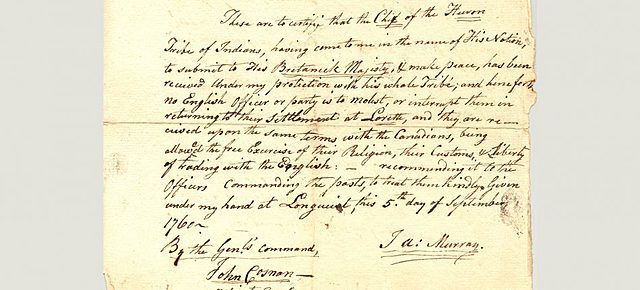 These are to certify that the Chief of the Huron
Tribe of Indians, having come to me in the name of His Nation,
to submit to His Britanick Majesty, & make peace, has been
received Under my protection with his whole Tribe; and henceforth
no English Officer or party is to molest, or interrupt them in
returning to their Settlement at Lorette, and they are re—
ceived upon the same terms with the Canadians, being
allowed the free Exercise of their Religion, their Customs, & Liberty
of trading with the English: — recommending it to the
Officers Commanding the posts, to treat them kindly. Given
under my hand at Longueuil, this 5th day of September,
1760—
By the Genl's Command, Ja: Murray.
John Cosnan—